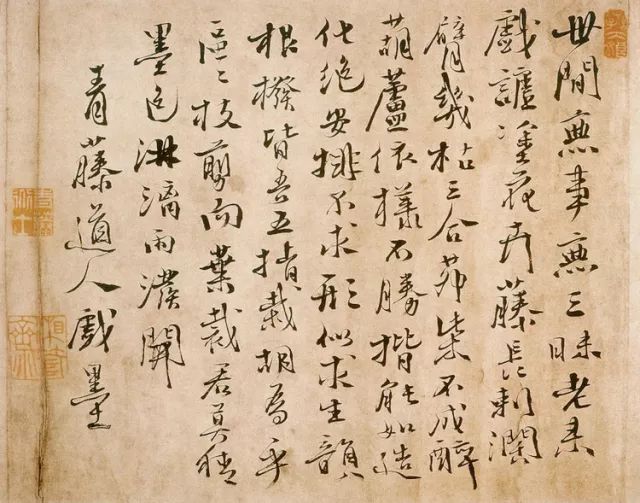 世間無事無三昧老來
戲謔塗花卉藤長刺闊
臂幾枯三合茆柴不成醉
葫蘆依樣不勝揩能如造
化絕安排不求形似求生韻
根撥皆吾五指栽胡為乎
區〻枝剪向葉裁君莫猜
墨色淋漓雨潑開
青藤道人戲墨